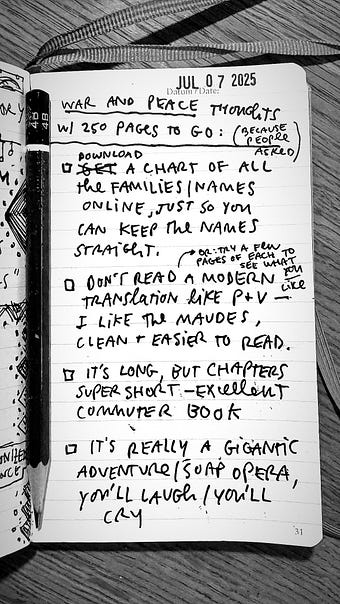 JUL 07 2025
Datum / Date:
WAR AND PEACE THOUGHTS
W/ 250 PAGES TO GO: (BECAUSE PEOPLE ASKED)
DOWNLOAD
GET A CHART OF ALL
the FAMILIES/NAMES
ONLINE, JUST SO YOU
CAN KEEP the NAMES
STRAIGHT.
→ OR: TRY A FEW
PAGES OF EACH TO
SEE WHAT YOU LIKE
DON'T READ A MODERN
TRANSLATION LIKE P+V —
I LIKE the MAUDES,
CLEAN + EASIER TO READ.
IT'S LONG, BUT CHAPTERS
SUPER SHORT - EXCELLENT
COMMUTER BOOK
IT'S REALLY A GIGANTIC
ADVENTURE/SOAP OPERA,
YOU'LL LAUGH/YOU'LL
CRY
31
4B 4B